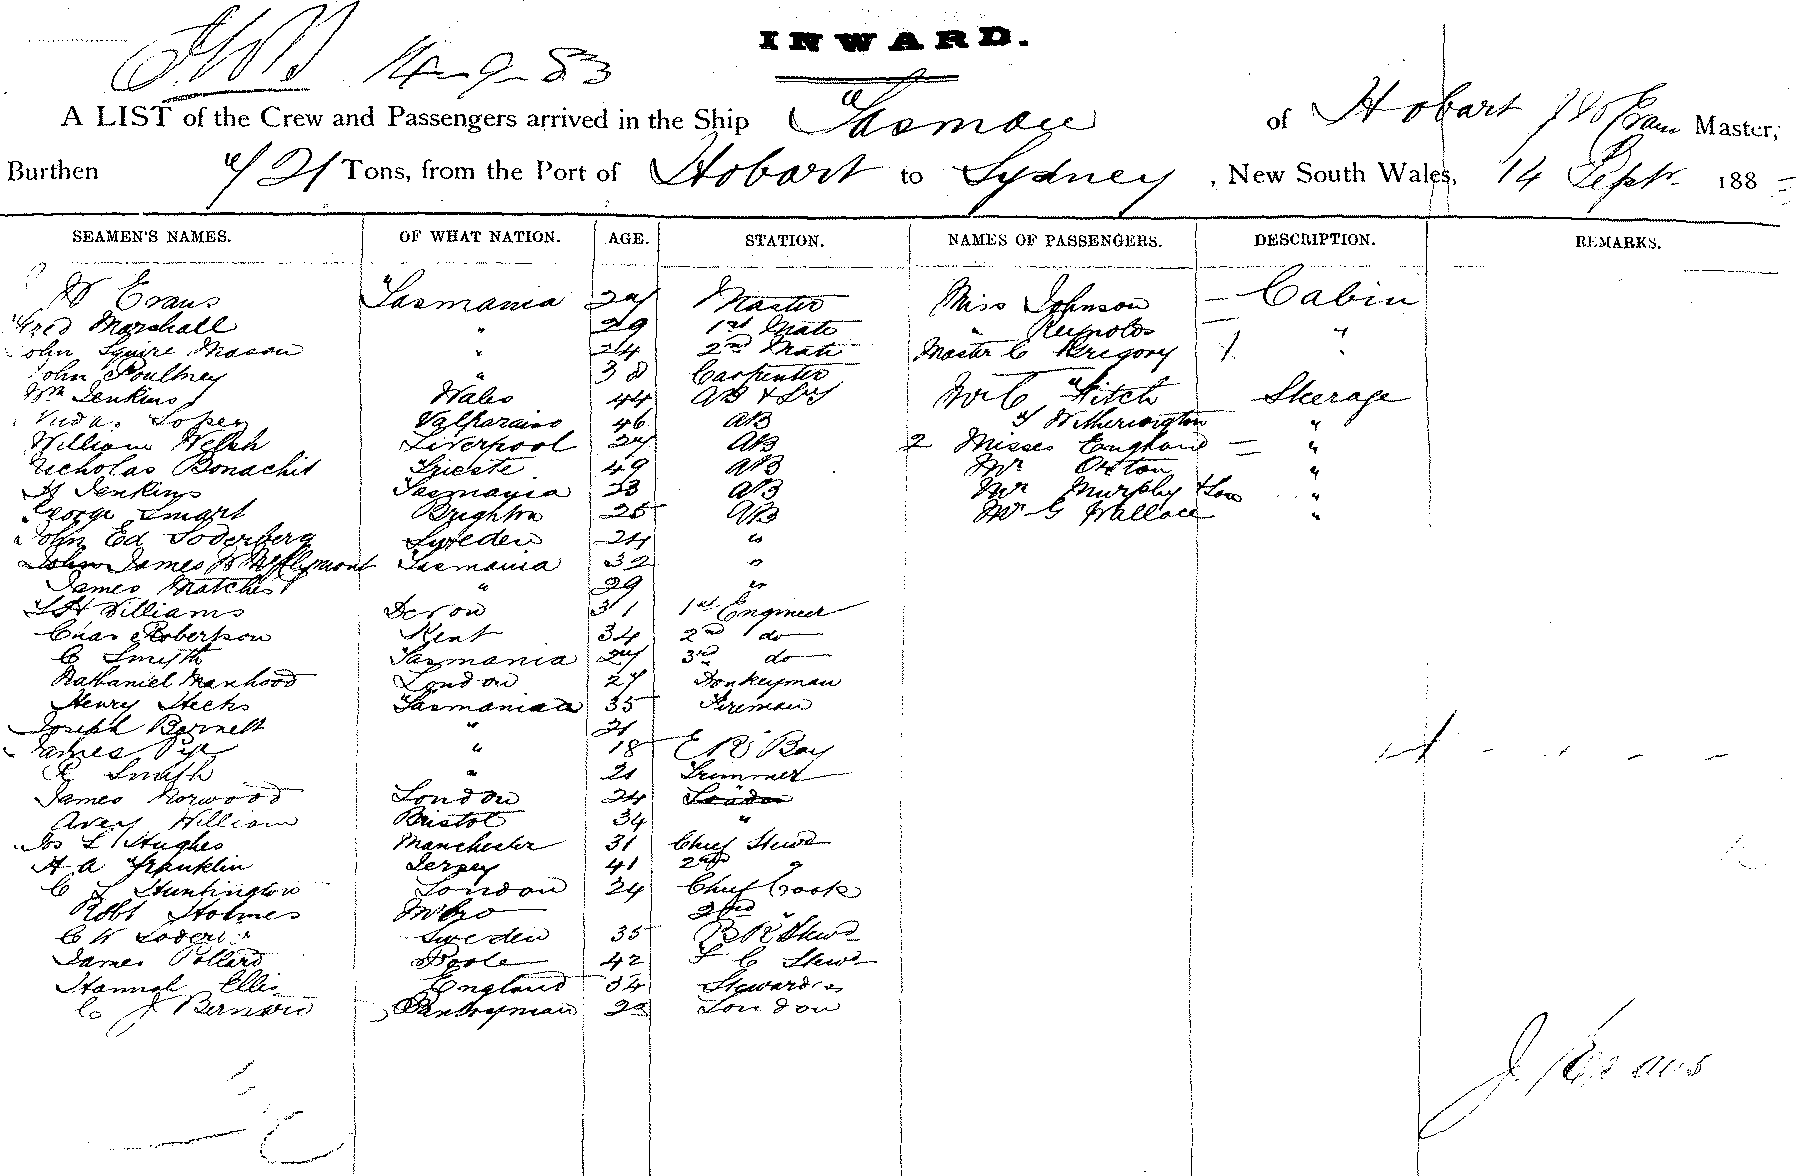 INWARD.
14-9-83
A LIST of the Crew and Passengers arrived in the Ship Tasman of Hobart Evans Master,
Burthen 721 Tons, from the Port of Hobart to Sydney, New South Wales, 14 Septr 188
SEAMEN'S NAMES. OF WHAT NATION. AGE. STATION. NAMES OF PASSENGERS. DESCRIPTION. REMARKS.
W Evans Tasmania 27 Master Miss Johnson — Cabin
Fred Marshall " 29 1st Mate " Reynolds "
John Squire Mason " 24 2nd Mate Master C Gregory 1 "
John Poultney " 38 Carpenter
Wm Jenkins Wales 44 AB & Mr C Fitch Steerage
Lopez Valparaiso 46 AB Witherington "
William Welsh Liverpool 27 AB 2 Misses England = "
Nicholas Bonachit Trieste 49 AB Mr Orton "
H Jenkins Tasmania 23 AB Mr Murphy & Son "
George Smart Brighton 25 AB Mr G Wallace "
John Ed Soderberg Sweden 24 "
John James W Tasmania 32 "
James Matches " 29 "
Williams Devon 31 1st Engineer
Chas Robertson Kent 34 2nd do
C Smyth Tasmania 27 3rd do
Nathaniel Manhood London 27 Donkeyman
Henry Hicks Tasmania 35 Fireman
Joseph Barnett " 21
James Pye " 18 E R Boy
R Smith " 21 Trimmer
James Norwood London 24 London
Avery William Bristol 34 "
Jos L Hughes Manchester 31 Chief Stewd
H A Franklin Jersey 41 2nd "
C Huntington London 24 Chief Cook
Robt Holmes 2nd "
C W Sweden 35 Stewd
James Pollard Poole 42 C Stewd
Hannah Ellis England 34 Stewardess
C J Bernard Pantryman London
J. Evans